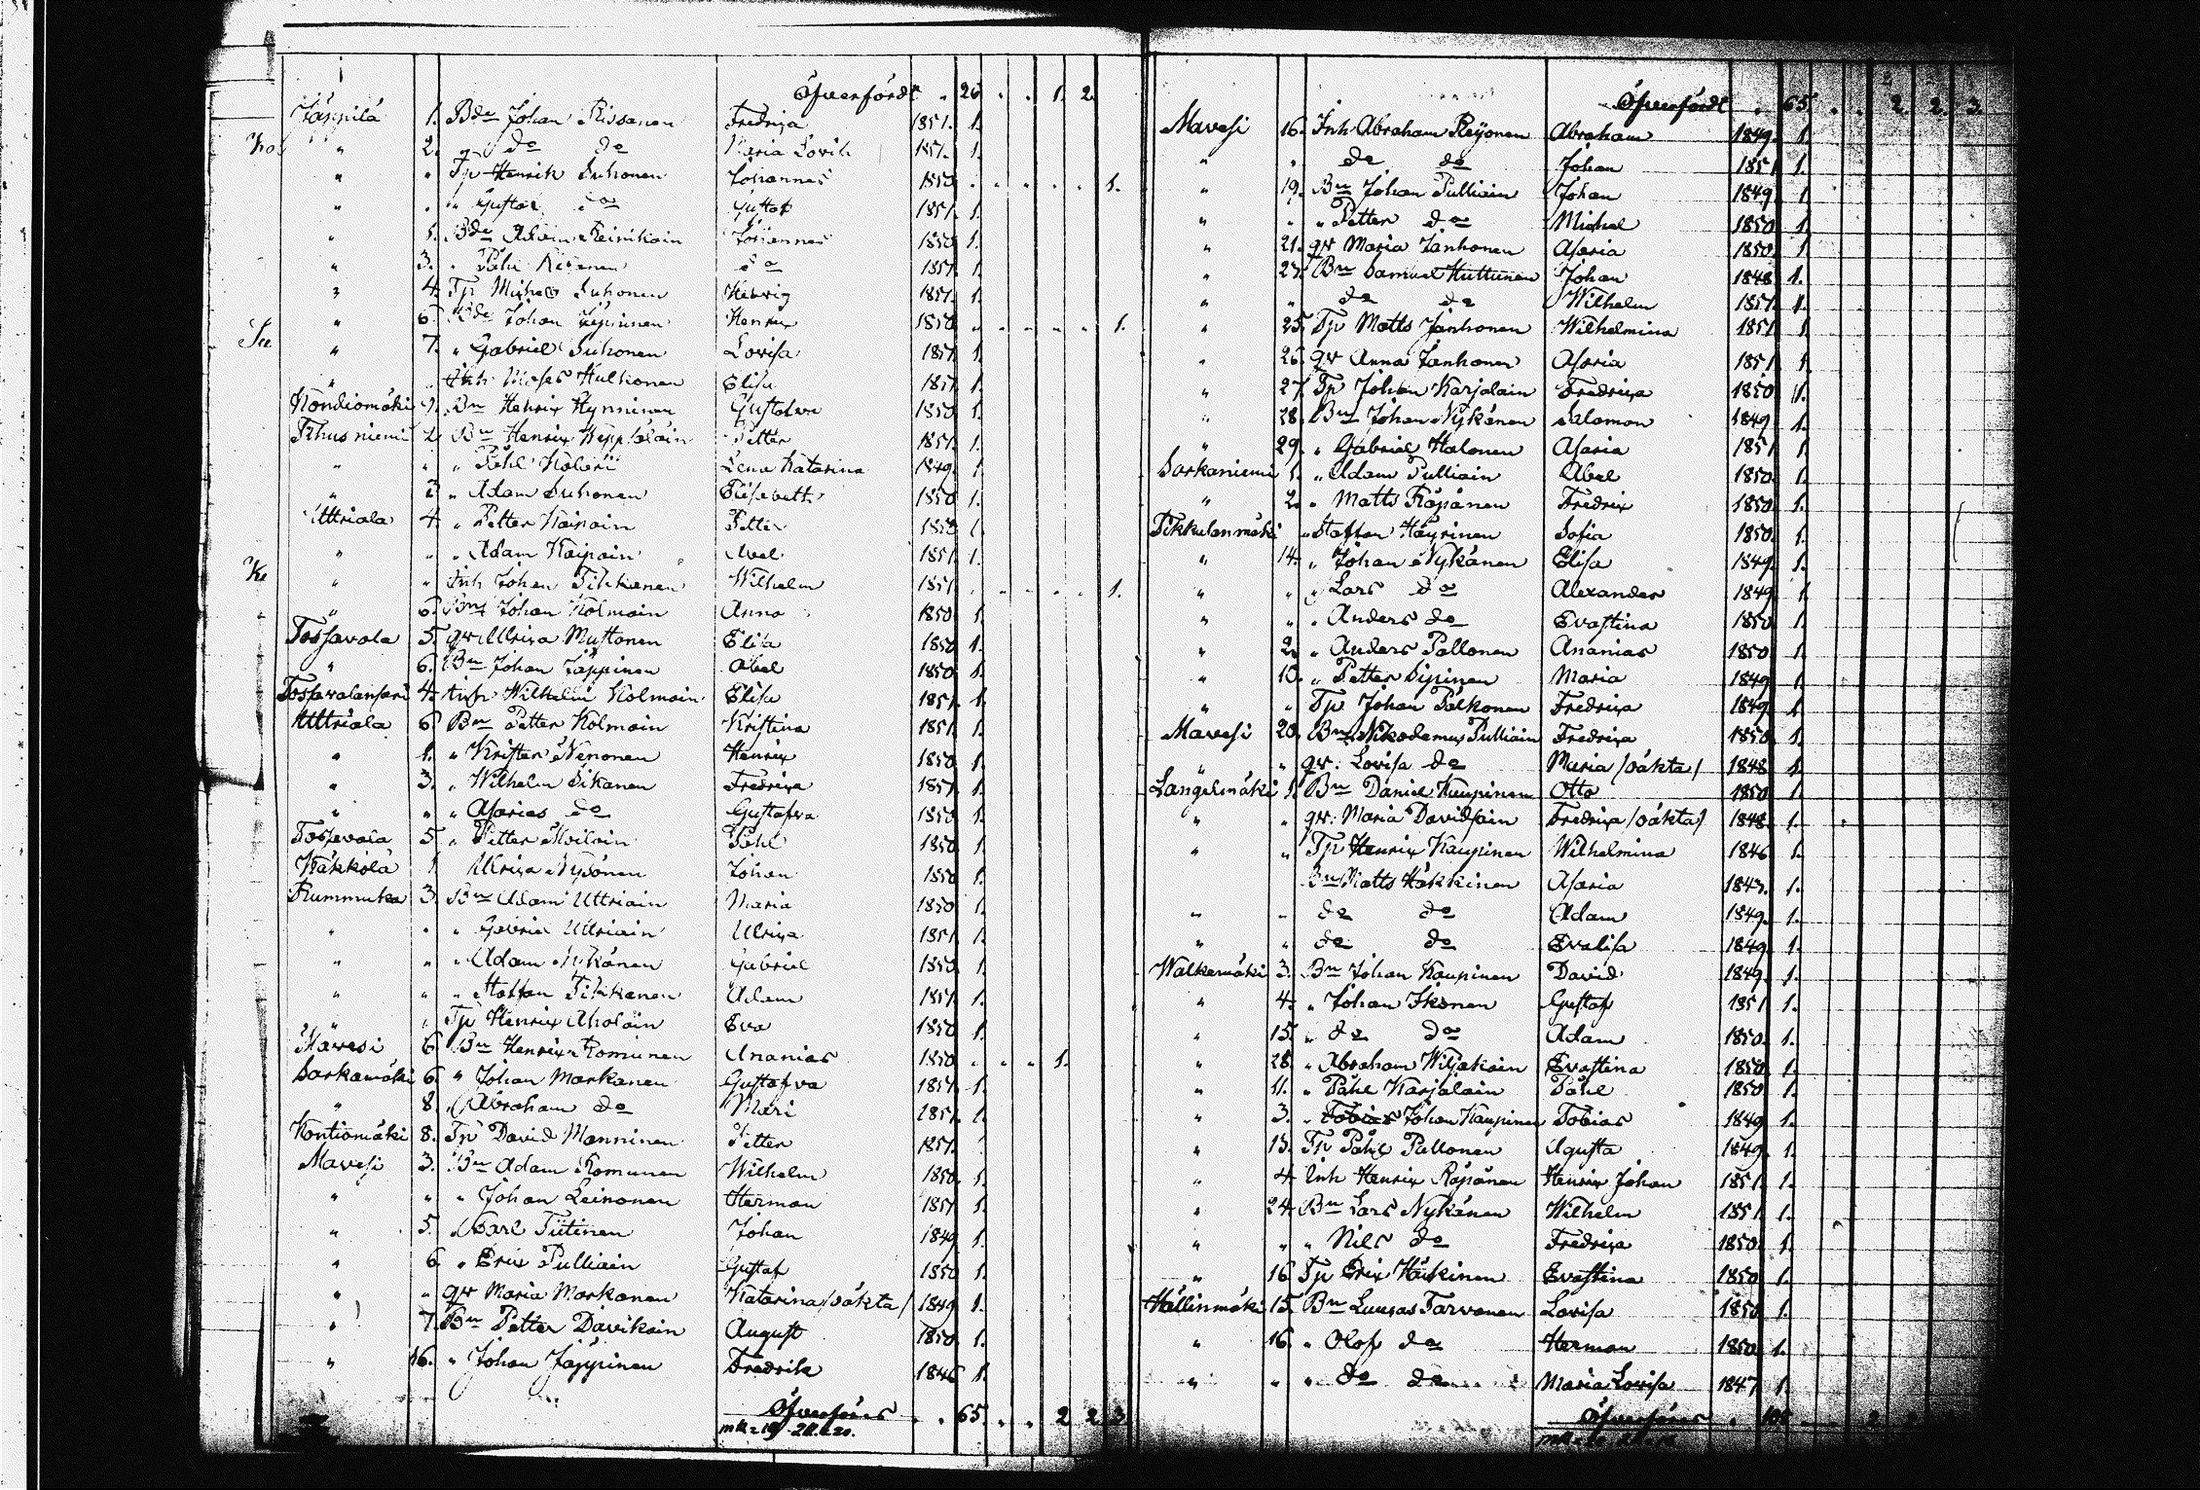 Öfverfördt . 26 . . 1. 2.
Jäppilä 1. Bde Johan Rissanen Fredrixa 1851. 1.
" 2. " do do Maria Lovis 1851. 1.
" " Tp Henrik Suhonen Johannes 1850 . . . . . 1.
" . " Gustaf do Gustaf 1851. 1.
" 1. Bde Adam Reinikain Johannes 1850 1.
" 3. " Påhl do 1851. 1.
" 4. Tp Michel Suhonen Hedvig 1851. 1.
" 6. Bde Johan Jäppinen Henrix 1850 . . . . . 1.
" 7. " Gabriel Suhonen Lovisa 1851. 1.
" " Inh Moses Hulkonen Elisa 1851. 1.
Kondiomäki 7. Bn Henrix Hynninen Gustafva 1850 1.
Tihusniemi 2. Bn Henrix Petter 1851. 1.
" " " Påhl Lena Katarina 1849. 1.
" 2. " Adam Suhonen Elisabeth 1850 1.
Uttriala 4. " Petter Kaipain Petter 1850 1.
" " " Adam Kaipain Abel 1851. 1.
" " Inh Johan Tikkanen Wilhelm 1851. . . . . . 1.
" 6. Bn Johan Kolmain Anna 1850 1.
Tossavala 5. qv Ulrixa Mustonen Elisa 1850 1.
" 6. Bn Johan Jäppinen Abel 1850 1.
Tossavalansari 4. Inh Wilhelm Kolmain Elisa 1851. 1.
Uttriala 6. Bn Petter Kolmain Kristina 1851. 1.
" 1. " Krister Nenonen Henrix 1850 1.
" 3. " Wilhelm Sikanen Fredrixa 1851. 1.
" " " Asarias do Gustafva 1850 1.
Tossavala 5. " Petter Moilain Påhl 1850 1.
Käkkölä 1 Ulrixa Nysönen Johan 1850 1.
Rummuka 3. Bn Adam Uttriain Maria 1850 1.
" " " Gabriel Uttriain Ulrixa 1851. 1.
" " " Adam Nykänen Gabriel 1850. 1.
" " " Staffan Tikkanen Adam 1851. 1.
" " Tp Henrix Aholain Eva 1850 1.
Mavesi 6 Bn Henrix Romunen Ananias 1850 . . . 1.
Sarkamäki 6. " Johan Markanen Gustafva 1851. 1.
" 8. " Abraham do Mari 1851. 1.
Kontiomäki 8. Tp David Manninen Petter 1851. 1
Mavesi 3. Bn Adam Romunen Wilhelm 1850. 1.
" " " Johan Leinonen Herman 1851. 1.
" 5. " Carl Tiitinen Johan 1849 1.
" 6 " Erix Pulliain Gustaf 1850 1.
" " qv Maria Markanen Katarina /oäkta/ 1849 1.
" 7. Bn Petter Davikain August 1850. 1.
" 16. " Johan Jäppinen Fredrik 1846 1.
Öfverföres . . 65. . . 2 2 3
Öfverfördt . 65. . . 2. 2. 3.
Mavesi 16. Inh Abraham Reijonen Abraham 1849. 1.
" " do do Johan 1851 1.
" 19. Bn Johan Pulliain Johan 1849 1
" " " Petter do Michel 1850 1.
" 21. qv Maria Janhonen Asaria 1850. 1.
" 23. Bn Samuel Huttunen Johan 1848 1.
" " do do Wilhelm 1851. 1.
" 25. Tp Matts Janhonen Wilhelmina 1851 1
" 26. qv Anna Janhonen Asaria 1851 1.
" 27. Tp Johan Karjalain Fredrixa 1850 1.
" 28. Bn Johan Nykänen Salomon 1849 1.
" 29. " Gabriel Halonen Asaria 1851 1.
Sarkaniemi 1. " Adam Pulliain Abel 1850. 1.
" 2. " Matts Räpänen Fredrix 1850. 1.
Tikkulanmäki " Staffan Häyrinen Sofia 1850. 1.
" 14. " Johan Nykänen Elisa 1849. 1.
" " " Lars do Alexander 1849 1
" " " Anders do Evastina 1850 1.
" 2. " Anders Pollonen Ananias 1850 1.
" 10. " Petter Sipinen Maria 1849 1
" " Tp Johan Pälkonen Fredrixa 1849. 1
Mavesi 20. Bn Nikodemus Pulliain Fredrixa 1850. 1.
" " qv: Lovisa do Maria /oäkta/ 1848 1.
Langelmäki 1. Bn Daniel Kaupinen Otto 1850 1.
" " qv: Maria Davidsain Fredrixa /oäkta/ 1848. 1.
" " Tp Henrix Kaupinen Wilhelmina 1846 1.
Bn Matts Häkkinen Asaria 1847. 1.
" " do do Adam 1849. 1.
" " do do Evalisa 1849. 1.
Walkamäki 3. Bn Johan Kaupinen David 1849. 1.
" 4. " Johan Ikonen Gustaf 1851 1.
" 15. " do do Adam 1850. 1.
" 28. " Abraham Wiljakain Evastina 1850. 1.
" 11. " Påhl Karjalain Påhl 1850. 1.
" 3. " Tobias Johan Kaupinen Tobias 1849 1.
" 13. Tp Påhl Pullonen Agusta 1849. 1.
" 4 Inh Henrix Räpänen Henrix Johan 1851. 1.
" 24 Bn Lars Nykänen Wilhelm 1851. 1.
" " " Nils do Fredrixa 1850. 1.
" 16 Tp Erix Häikinen Evastina 1850 1.
Hällinmäki 15. Bn Luucas Tarvanen Lovisa 1850. 1.
" 16. " Olof do Herman 1850. 1.
" " " do do Maria Lovisa 1847 1
Öfverföres . 108